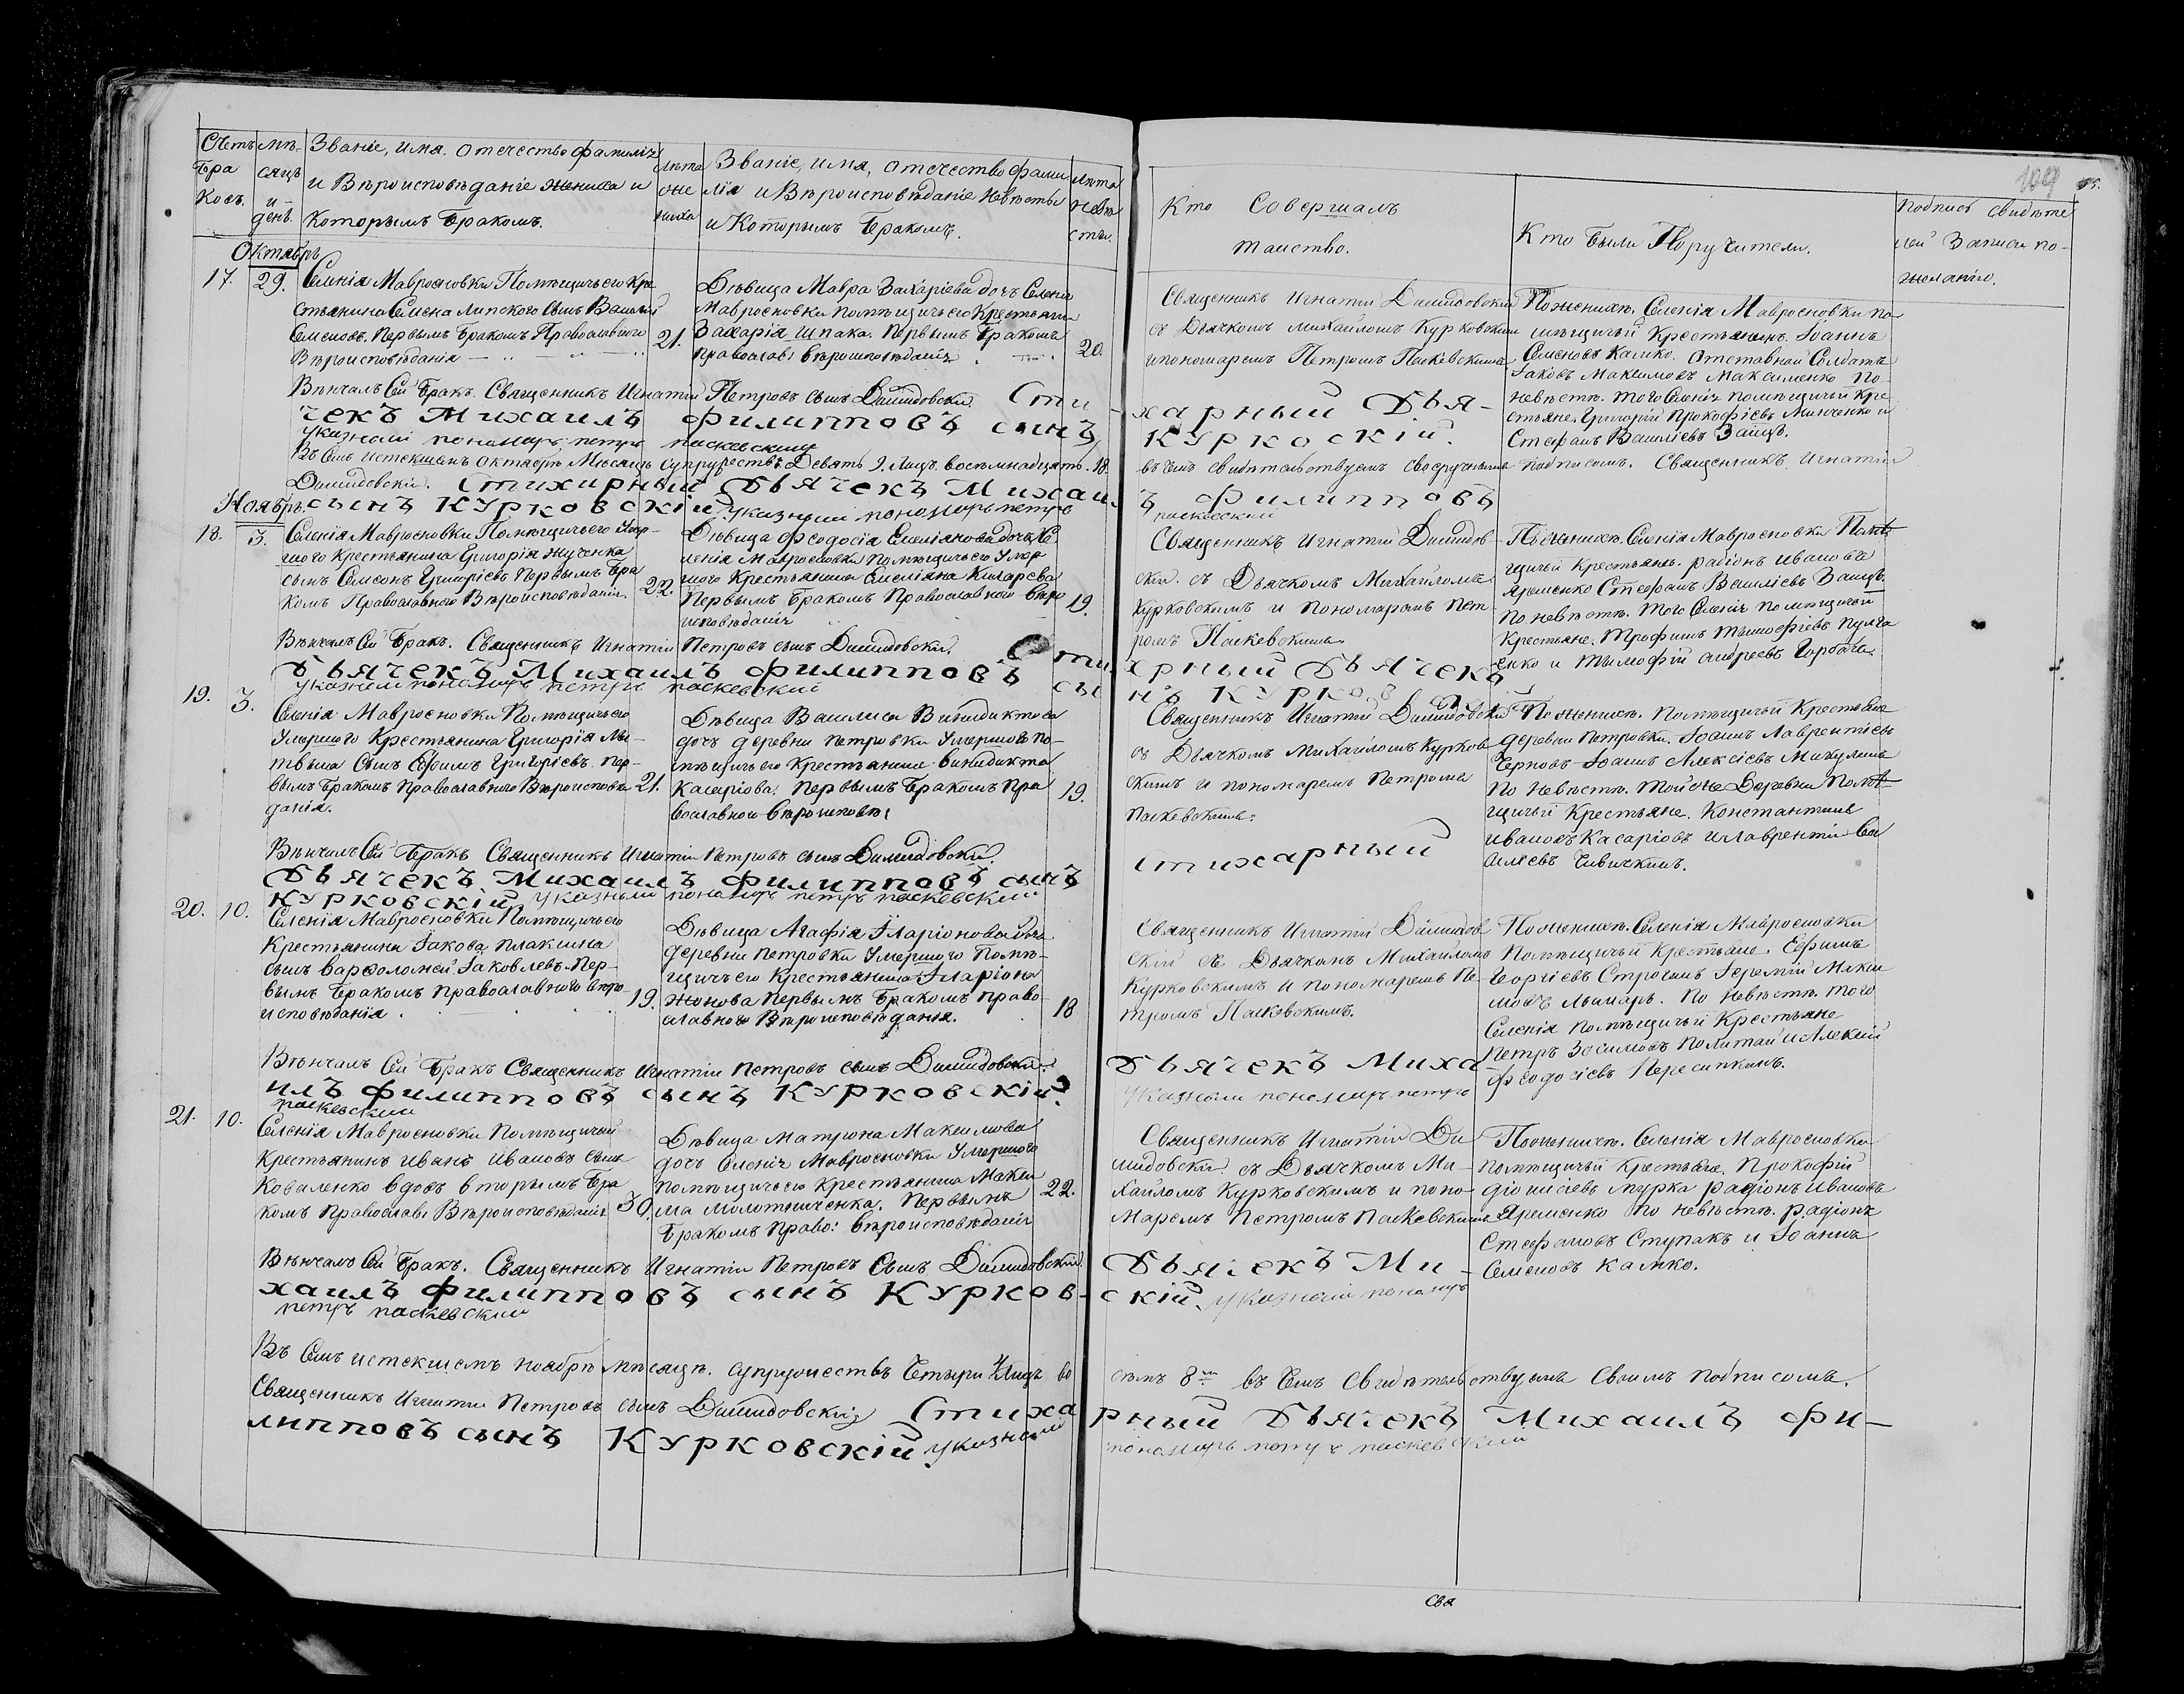 109
Счетъ
бра
ковъ.
мѣ-
сяцъ
и
день.
Званіе, имя. отечество фамилія
и Вѣроисповѣданіе жениха и
которымъ бракомъ.
лѣта
жениха
Званіе, имя, отечество фами
лія и Вѣроисповѣданіе Невѣсты
и Которымъ бракомъ.
лѣта
невѣ
сты.
Кто Совершалъ
таинство.
Кто были Поручители.
подпись свидѣте
лей Записи по-
желанію.
Октябрь
17. 29.
Селенія Маврояновки Помѣщичьего кре
стьянина Семена Липского сынъ Василій
Семеновъ. Первымъ бракомъ Православного
Вѣроисповѣданія
21.
Дѣвица Мавра Захаріева дочь Селенія
Мавросновки помѣщичьего Крестьяни
Захарія Шпака. Первымъ бракомъ
православ: вѣроисповѣданія
20.
Священникъ Игнатій Димидовскій
съ Дьячкомъ Михайломъ Курковскимъ
и пономаремъ Петромъ Паскевскимъ
Поженихѣ. Селенія Мавросновки по-
мѣщичьй Крестьянинъ. Іоаннъ
Семеновъ Калко. отставной Солдатъ
Іаковъ Максимовъ Максименко по-
невѣстѣ. того Селенія помѣщичьи кре
стьяне. Григорій Прокофіевъ Минченко и
Стефанъ Василіевъ Заицъ.
Вѣнчалъ Сей бракъ. Священникъ Игнатій Петровъ сынъ Димидовскій. Сти-
харный Дья-
чекъ Михаилъ Филипповъ сынъ
Куркоскій.
указный пономарь петръ паскевскій
Въ семъ истекшемъ октябрѣ Мѣсяцѣ супружествъ Девять 9. Лицъ. восемнадцать. 18.
въ чемъ свидѣтельствуемъ своеручнымъ подписомъ. Священникъ Игнатій
Димидовскій. Стихирный Дьячекъ Михаи
лъ Филипповъ
Ноябрь. сынъ Курковскій указный пономарь петръ
паскевскій
18. 3.
Селенія Мавросновки Помѣщичьего Умер-
шого крестьянина Григорія Жученка
сынъ Самсонъ Григоріевъ Первымъ бра
комъ Православного Вѣроисповѣданія.
22.
Дѣвица Феодосія Емеліанова дочь Се
ленія Мавросновки помѣщичьего Умер
шого Крестьянина Емеліана Кихарева
Первымъ бракомъ Православного вѣро
исповѣданія
19.
Священникъ Игнатій Димидов-
скій. съ Дьячкомъ Михайломъ
Курковскимъ и Пономаремъ Пет-
ромъ Паскевскимъ
Поженихѣ. Селенія Мавросновки Помѣ
щичьи Крестьяне. Радіонъ Ивановъ
Яременко Стефанъ Василіевъ Заицъ.
По невѣстѣ. Того Селенія помѣщичьи
Крестьяне. Трофимъ Тимофіевъ Пулча
енко и Тимофій Андреевъ Горбачъ.
Вѣнчалъ Сей бракъ. Священникъ Игнатій Петровъ сынъ Димидовскій. Сти
харный Дьячекъ
Дьячекъ Михаилъ Филипповъ сы
нъ Курков
указный пономарь петръ паскевский
19. 3.
Селенія Мавросновки Помѣщичьего
Умершого Крестьянина Григорія Ли
твина сынъ Ефимъ Григоріевъ. пер-
вымъ бракомъ Православного Вѣроисповѣ
данія.
21.
Дѣвица Василиса Винидиктова
дочь деревни Петровки Умершого по-
мѣщичьего крестьянина Винидикта
Касаріова. Первымъ бракомъ Пра
вославного вѣроисповѣ:
19.
Священникъ Игнатій Димидовскій
съ Дьячкомъ Михайломъ Курков
скимъ и пономаремъ Петромъ
Паскевскимъ:
Поженихѣ. Помѣщичьи Крестьяне
деревни Петровки. Іоаннъ Лаврентіевъ
Черновъ Іоаннъ Алексіевъ Микулинъ
По Невѣстѣ. Той же Деревни Помѣ
щичьи Крестьяне. Константинъ
Ивановъ Касаріовъ и Лаврентій Ва
силіевъ Чивичкинъ.
Вѣнчалъ Сей бракъ Священникъ Игнатій Петровъ сынъ Димидовскій.
стихарный
Дьячекъ Михаилъ Филипповъ сынъ
Курковскій указный пономарь петръ паскевский
20. 10.
Селенія Мавросновки Помѣщичьего
Крестьянина Іакова Плаксина
сынъ Варфоломей Іаковлевъ. Пер-
вымъ бракомъ православного вѣро-
исповѣданія
19.
Дѣвица Агафія Іларіонова дочь
деревни Петровки Умершого Помѣ-
щичьего Крестьянина Іларіона
Жонова Первымъ бракомъ право-
славного Вѣроисповѣданія.
18
Священникъ Игнатій Димидов
скій съ Дьячкомъ Михайломъ
Курковскимъ и пономаремъ Пе-
тромъ Паскевскимъ.
Поженихѣ. Селенія Мавросновки
Помѣщичьи Крестьяне. Ефимъ
Георгіевъ Строчинъ Іеремій Макси
мовъ Лымарь. По Невѣстѣ. того
Селенія Помѣщичьи Крестьяне
Петръ Зосимовъ Политай и Алексій
Феодосіевъ Пересипкинъ.
Вѣнчалъ Сей бракъ Священникъ Игнатій Петровъ сынъ Димидовскій.
Дьячекъ Миха
илъ Филипповъ сынъ Курковскій
указный пономарь петръ
паскевскій
21. 10.
Селенія Мавросновки Помѣщичьй
Крестьянинъ Иванъ Ивановъ сынъ
Коваленко вдовъ вторымъ бра
комъ православ: Вѣроисповѣданія
30.
Дѣвица Матрона Максимова
дочь Селенія Мавросновки Умершого
помѣщичьего крестьянина Макси
ма Молотниченка. Первымъ
бракомъ право: вѣроисповѣданія
22.
Священникъ Игнатій Ди
мидовскій. съ Дьячкомъ Ми-
хайломъ Курковскимъ и поно-
маремъ Петромъ Паскевскимъ
Поженихѣ. Селенія Мавросновки
помѣщичьи Крестьяне. Прокофій
Діонисіевъ Мурка Радіонъ Ивановъ
Яременко по невѣстѣ. Радіонъ
Стефановъ Ступакъ и Іоаннъ
Семеновъ Калко.
Вѣнчалъ Сей бракъ. Священникъ Игнатій Петровъ Сынъ Димидовскій.
Дьячекъ Ми-
хаилъ Филипповъ сынъ Курков-
скій. указный пономарь
петръ паскевский
Въ Семъ истекшемъ ноябрѣ мѣсяцѣ. супружествъ Четыри 4 Лицъ во
семъ 8 въ Чемъ Свидѣтельствуемъ Своимъ подписомъ.
Священникъ Игнатій Петровъ сынъ Димидовскій Стиха
рный Дьячекъ Михаилъ Фи-
липповъ сынъ Курковскій указный
пономарь петръ паскевский
Свя